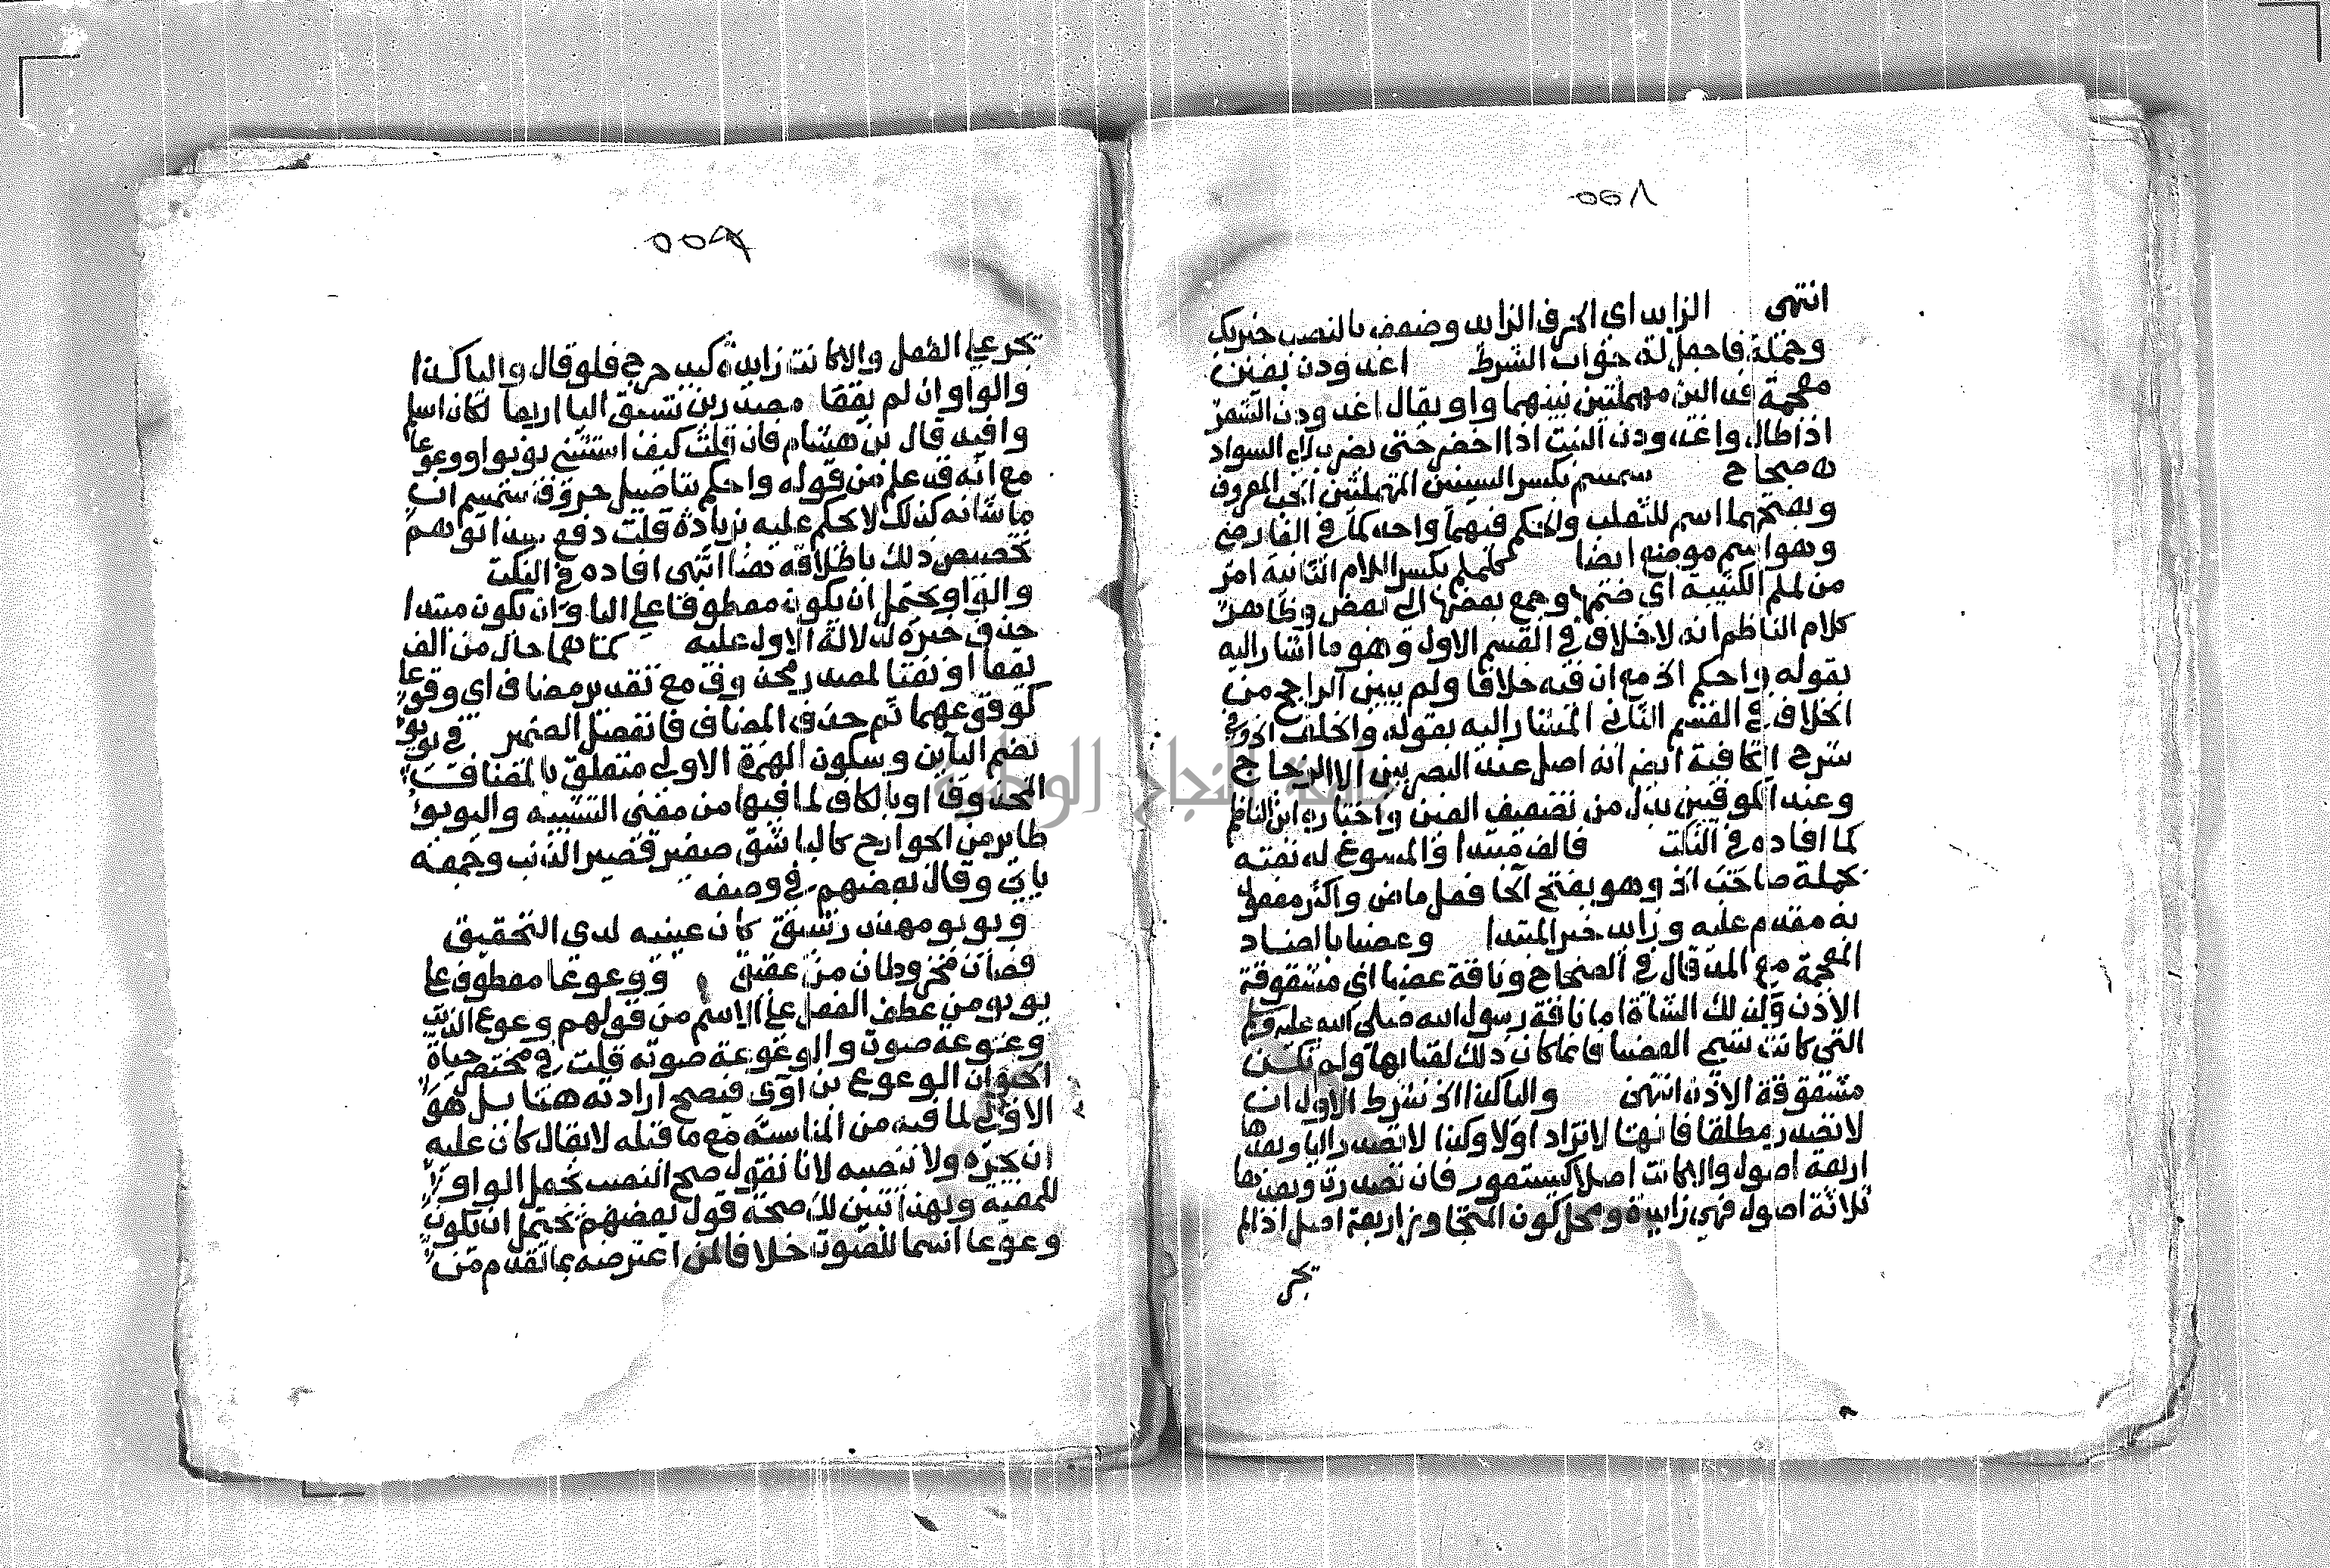 ٥٥٨
انتهى الزايد اى الحرف الزايد وضعف بالنصب خبر يك
وجملة فاجعل له جواب الشرط اغدودن بغين
معجمة فدالين مهملتين بينهما واو يقال اغدودن الشعر
اذا طال واغدودن النبت اذا اخضر حتى يضرب الى السواد
ه صحاح سمسم بكسر السينين المهملتين الحب المعروف
وبفتحهما اسم للثعلب والحكم فيهما واحد كما فى الفارضى
وهو اسم موضع ايضا كلملم بكسر اللام الثانية امر
من لملم الكتيبة اى ضمها وجمع بعضها الى بعض وظاهر
كلام الناظم انه لا خلاف فى القسم الاول وهو ما اشار اليه
بقوله واحكم الخ مع ان فيه خلافا ولم يبين الراجح من
الخلاف فى القسم الثانى المشار اليه بقوله والخلف الخ وفى
شرح الكافية انه اصل عند البصريين الا الزجاج
وعند الكوفيين بدل من تضعيف العين واختاره ابن الناظم
كما افاده فى النكت فالف مبتدا والمسوغ له نعته
بجملة صاحب الخ وهو بفتح الحا فعل ماض واكثر مفعول
به مقدم عليه وزايد خبر المبتدا وعضبا بالضاد
المعجمة مع المد قال فى الصحاح وناقة عضبا اى مشقوقة
الاذن وكذلك الشاة اما ناقة رسول الله صلى الله عليه وسلم
التى كانت تسمى العضبا فانما كان ذلك لقبا لها ولم تكن
مشقوقة الاذن انتهى والياكذا الخ شرط الاول ان
لا تصدر مطلقا فانها لا تزاد اولا وكذا لا تصدر اليا وبعدها
اربعة اصول والا كانت اصلا كيستعور فان تصدرت وبعدها
ثلاثة اصول فهى زايدة ومحل كون المتجاوز اربعة اصل اذا لم
يجر
٥٥٩
يجر على الفعل والا كانت زايدة كيدحرج فلو قال واليا كذا
والواو ان لم يقعا مصدرين تسبق اليا اربعا لكان اسلم
وافيد قال بن هشام فان قلت كيف استثنى يويوا ووعوعا
مع انه قد علم من قوله واحكم بتاصيل حروف سمسم ان
ما شانه كذلك لا يحكم عليه بزيادة قلت دفع بهذا توهم
تخصيص ذلك باطلاقه هنا انتهى افاده فى النكت
والواو يحتمل ان يكون معطوفا على اليا وان يكون مبتدا
حذف خبره لدلالة الاول عليه كما هما حال من الف
يقعا او نعتا لمصدر محذوف مع تقدير مضاف اى وقوعا
كوقوعهما ثم حذف المضاف فانفصل الضمير فى يويو
بضم اليآين وسكون الهمزة الاولى متعلق بالمضاف
المحذوف او بالكاف لما فيها من معنى التشبيه واليويو
طاير من الجوارح كالباشق صغير قصير الذنب وجمعه
يآيى وقال بعضهم فى وصفه
ويويو مهذب رشيق كان عينيه لدى التحقيق
فصان مخروطان من عقيق ووعوعا معطوف على
يويو من عطف الفعل على الاسم من قولهم وعوع الذيب
وعوعة صوت والوعوعة صوته قلت فى مختصر حياة
الحيوان الوعوع بن آوى فتصح ارادته هنا بل هو
الاولى لما فيه من المناسبة مع ما قبله لا يقال كان عليه
ان يجره ولا ينصبه لانا نقول صح النصب بجعل الواو
للمعية وبهذا تبين لك صحة قول بعضهم يحتمل ان يكون
وعوعا اسما للصوت خلافا لمن اعترضه بما تقدم من
جامعة النجاح الوطنية